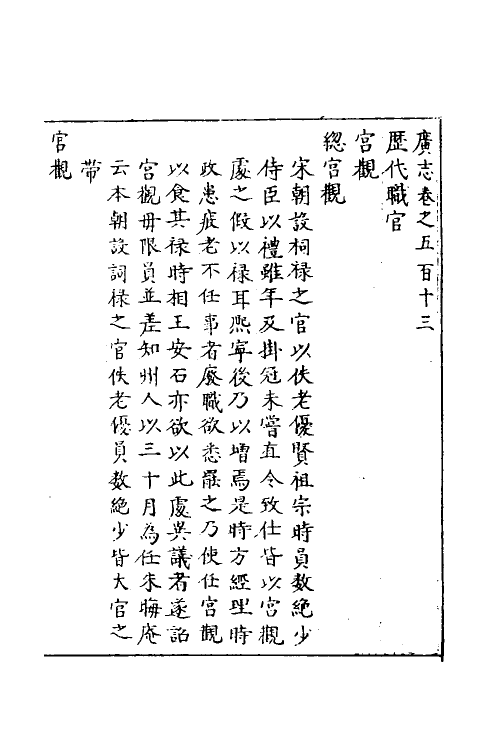 廣志卷之五百十三
歷代職官
宫觀
總宫觀
宋朝設祠禄之官以佚老優賢祖宗時員数絶少
侍臣以禮雖年及掛冠未嘗直令致仕皆以宫觀
處之假以禄耳熈寧後乃以増焉是時方經理時
政患疲老不任事者廢職欲悉罷之乃使任宫觀
以食其禄時相王安石亦欲以此處異議者遂詔
宫觀毋限員並差知州人以三十月為任朱晦庵
云本朝設詞禄之官佚老優員数絶少皆大官之
帶
宫觀